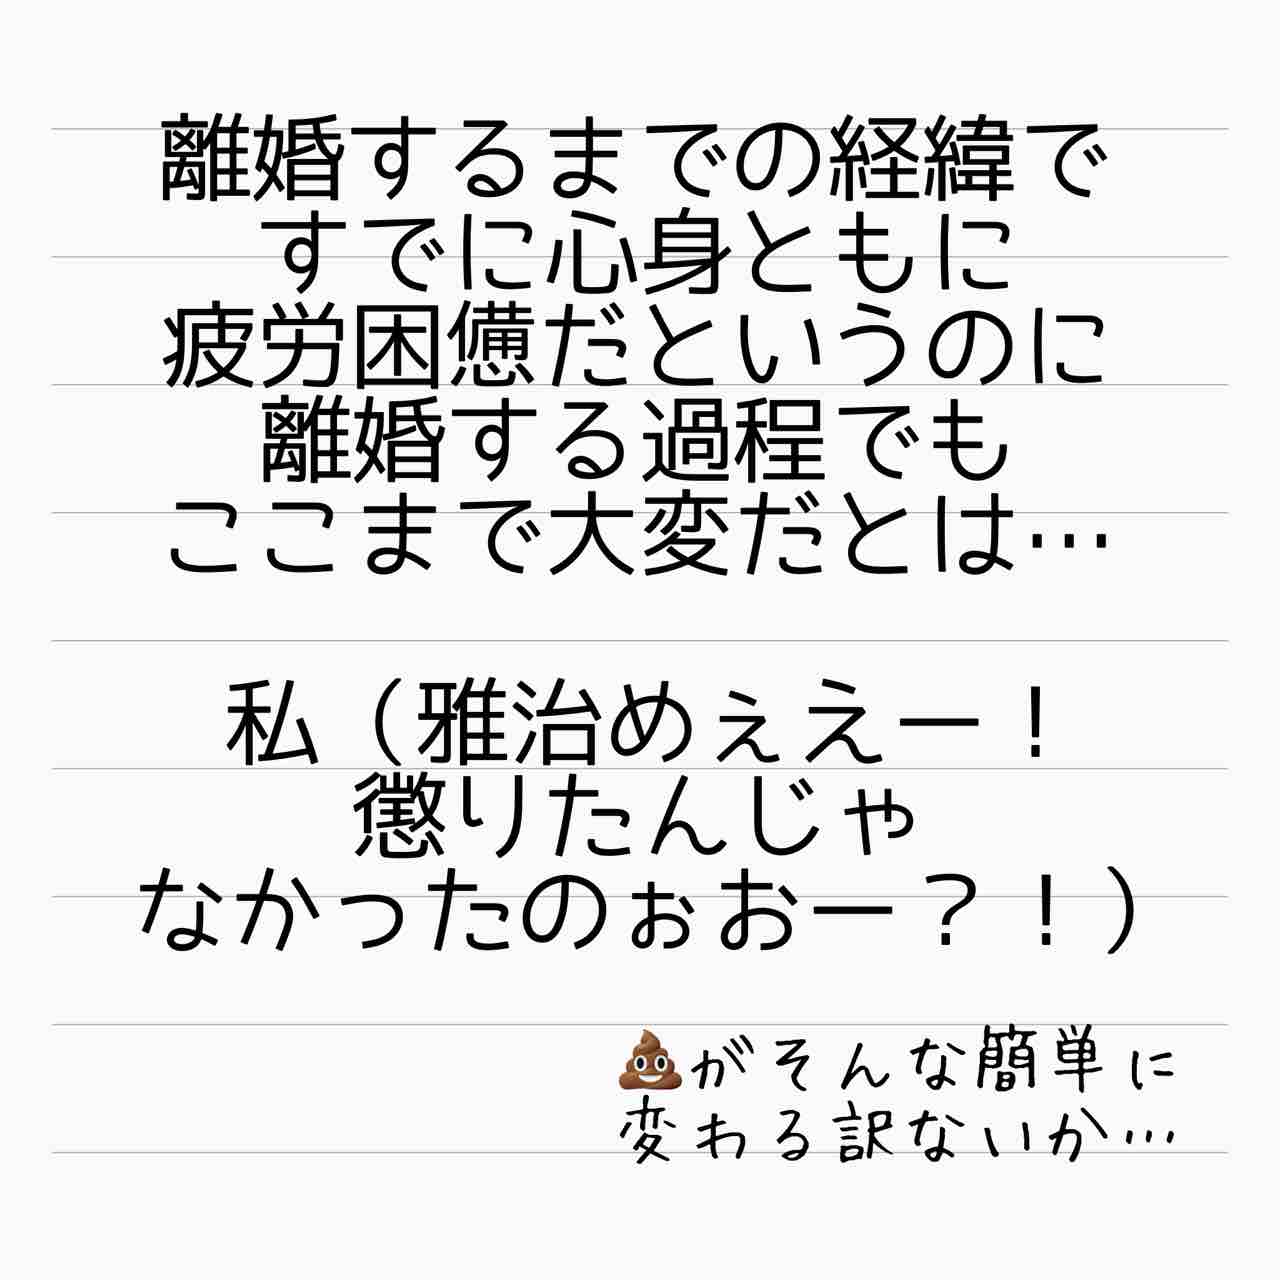 離婚するまでの経緯で
すでに心身ともに
疲労困憊だというのに
離婚する過程でも
ここまで大変だとは…
私（雅治めぇえー！
懲りたんじゃ
なかったのぉおー？！）
💩がそんな簡単に
変わる訳ないか…